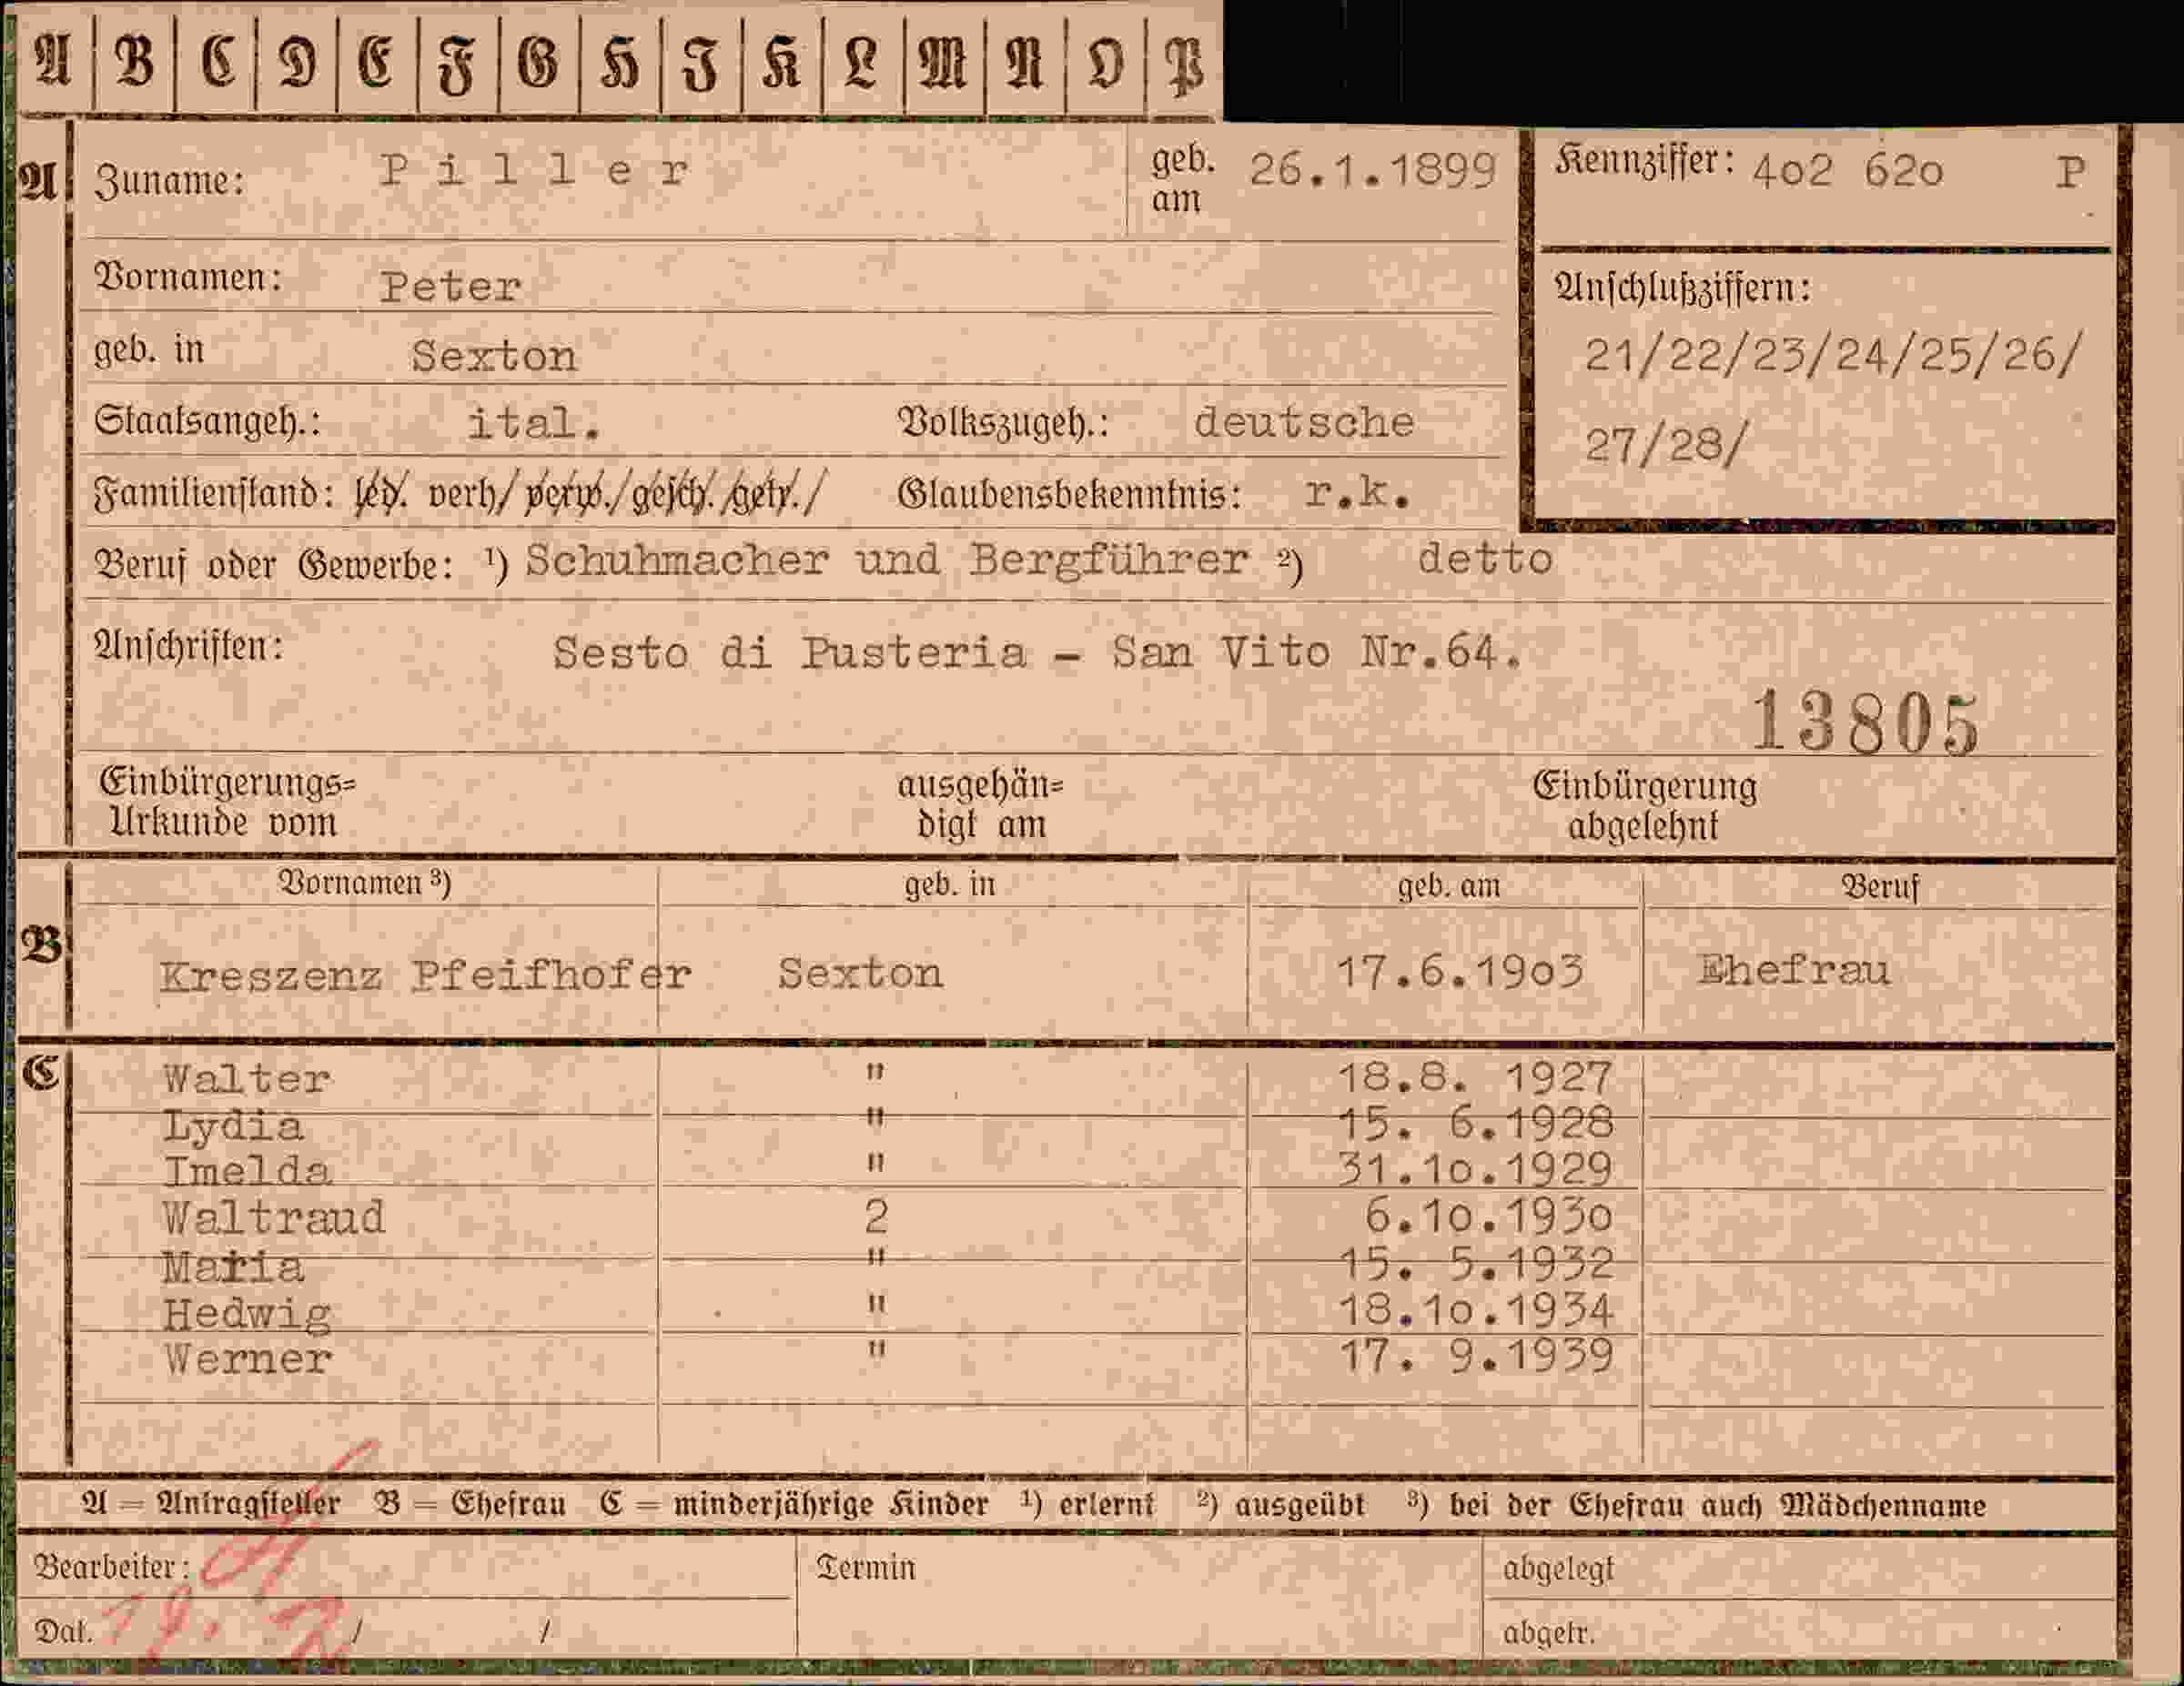 A B C D E F G H J K L M N O P
A Zuname: Piller geb. am 26.1.1899 Kennziffer: 402 620 P
Vornamen: Peter
Anschlußziffern:
geb. in Sexton
21/22/23/24/25/26/
Staatsangeh.: ital. Volkszugeh.: deutsche
27/28/
Familienstand: led. verh/ verw./gesch./getr./ Glaubensbekenntnis: r.k.
Beruf oder Gewerbe: ¹) Schuhmacher und Bergführer ²) detto
Anschriften: Sesto di Pusteria - San Vito Nr.64.
13805
Einbürgerungs= ausgehän= Einbürgerung
Urkunde vom digt am abgelehnt
Vornamen ³) geb. in geb. am Beruf
B Kreszenz Pfeifhofer Sexton 17.6.1903 Ehefrau
C Walter " 18.8. 1927
Lydia " 15. 6.1928
Imelda " 31.10.1929
Waltraud 2 6.10.1930
Maria " 15. 5.1932
Hedwig " 18.10.1934
Werner " 17. 9.1939
A = Antragsteller B = Ehefrau C = minderjährige Kinder ¹) erlernt ²) ausgeübt ³) bei der Ehefrau auch Mädchenname
Bearbeiter: Termin abgelegt
Dat. / / abgetr.